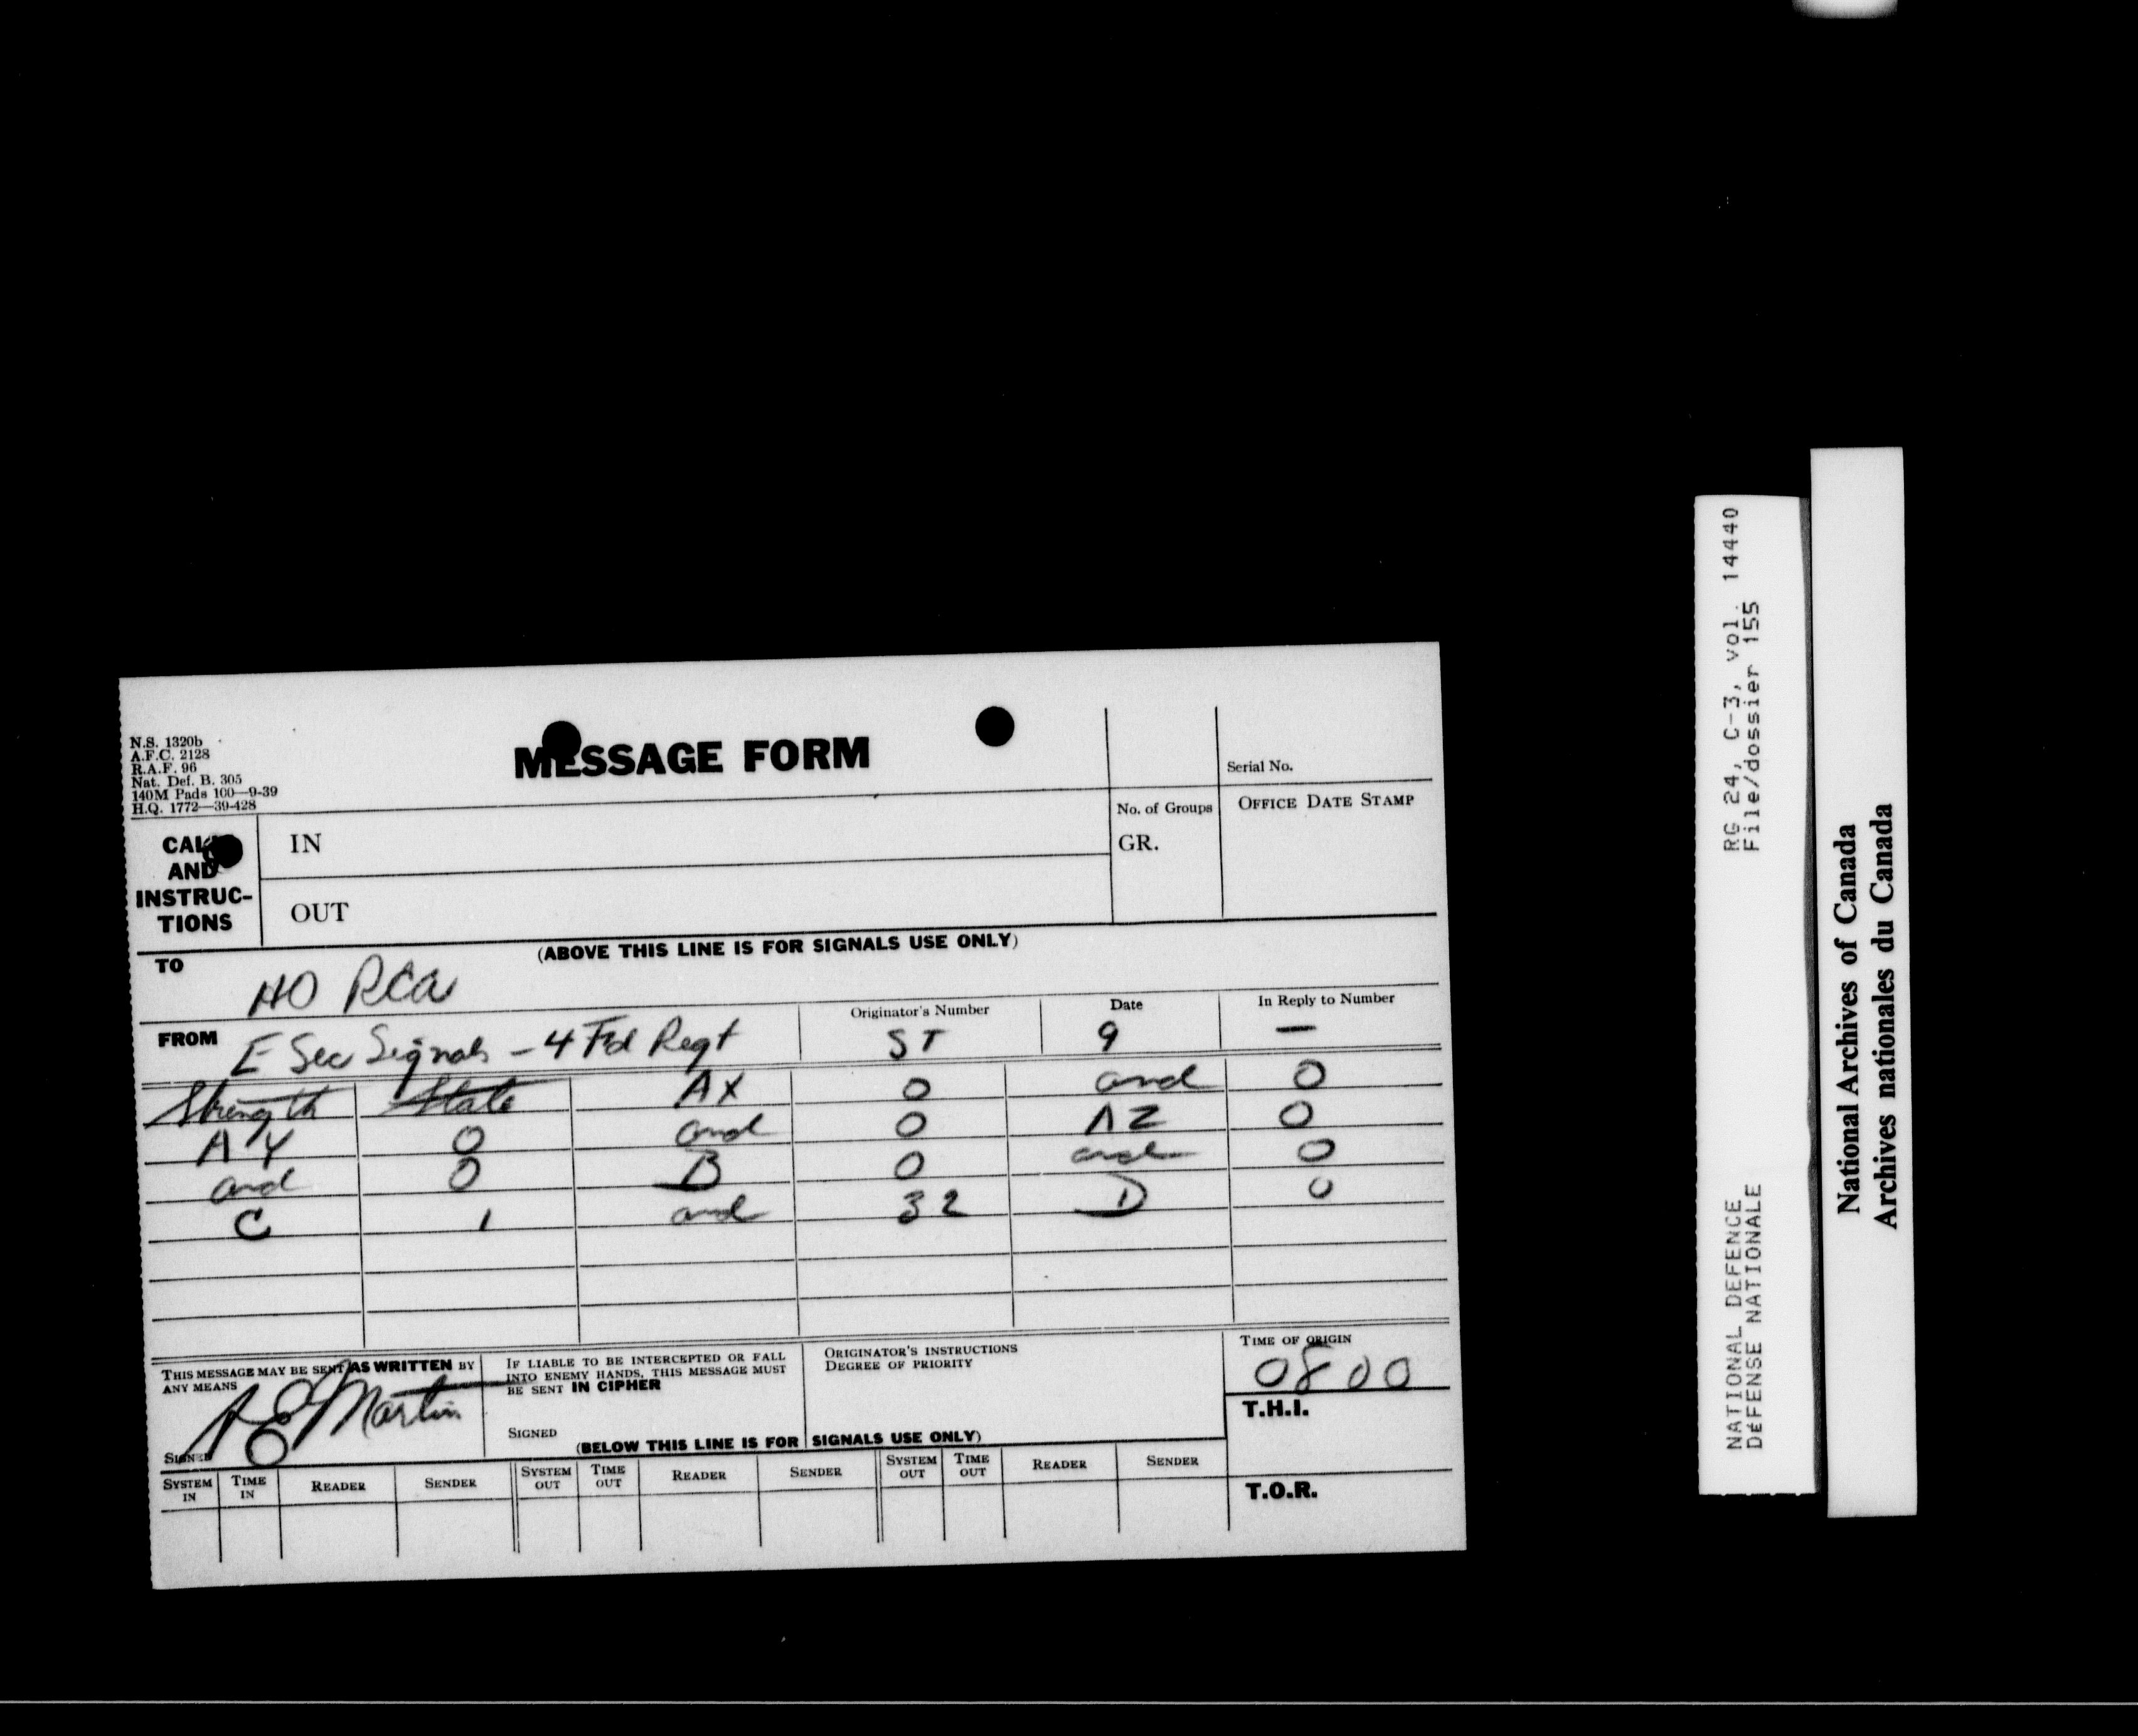 N.S. 1320b
A.F.C. 2128
R.A.F. 96
Nat. Def. B. 305
140M Pads 100—9-39
H.Q. 1772—39-428
MESSAGE FORM
Serial No.
CALL AND INSTRUC-TIONS
IN
OUT
No. of Groups
GR.
OFFICE DATE STAMP
(ABOVE THIS LINE IS FOR SIGNALS USE ONLY)
TO
HQ RCA
FROM E Sec Signals - 4 Fd Regt
Originator's Number
ST
Date
9
In Reply to Number
—
Strength State AX 0 and 0
AY 0 and 0 AZ 0
and 0 B 0 and 0
C 1 and 32 D 0
THIS MESSAGE MAY BE SENT AS WRITTEN BY ANY MEANS
A E Martin
SIGNED
IF LIABLE TO BE INTERCEPTED OR FALL
INTO ENEMY HANDS, THIS MESSAGE MUST
BE SENT IN CIPHER
SIGNED
ORIGINATOR'S INSTRUCTIONS
DEGREE OF PRIORITY
TIME OF ORIGIN
0800
T.H.I.
T.O.R.
(BELOW THIS LINE IS FOR SIGNALS USE ONLY)
SYSTEM IN TIME IN READER SENDER SYSTEM OUT TIME OUT READER SENDER SYSTEM OUT TIME OUT READER SENDER
NATIONAL DEFENCE RG 24, C-3, vol. 14440
DÉFENSE NATIONALE File/dossier 155
National Archives of Canada
Archives nationales du Canada